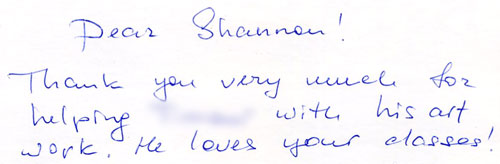 Dear Shannon!
Thank you very much for
helping with his art
work. He loves your classes!